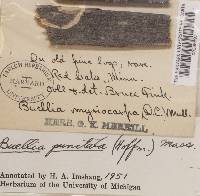 On old pine log, rare.
Red Lake, Minn.
Coll. & det. Bruce Fink
Buellia myriocarpa (D.C.) Mudd.
HERB. G. K. MERRILL
FARLOW HERBARIUM
HARVARD
Buellia punctata (Hoffm.) Mass.
Annotated by H. A. Imshaug, 1951
Herbarium of the University of Michigan